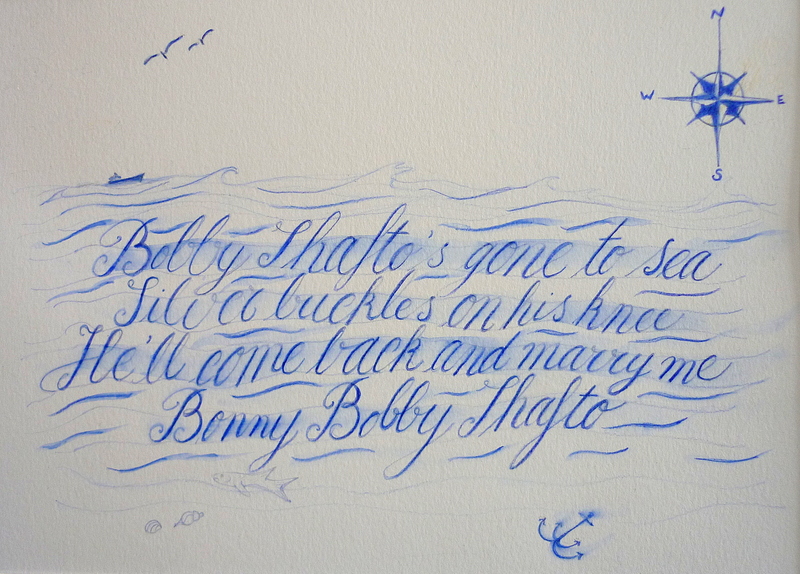 N
W E
S
Bobby Shafto's gone to sea
Silver buckles on his knee
He'll come back and marry me
Bonny Bobby Shafto